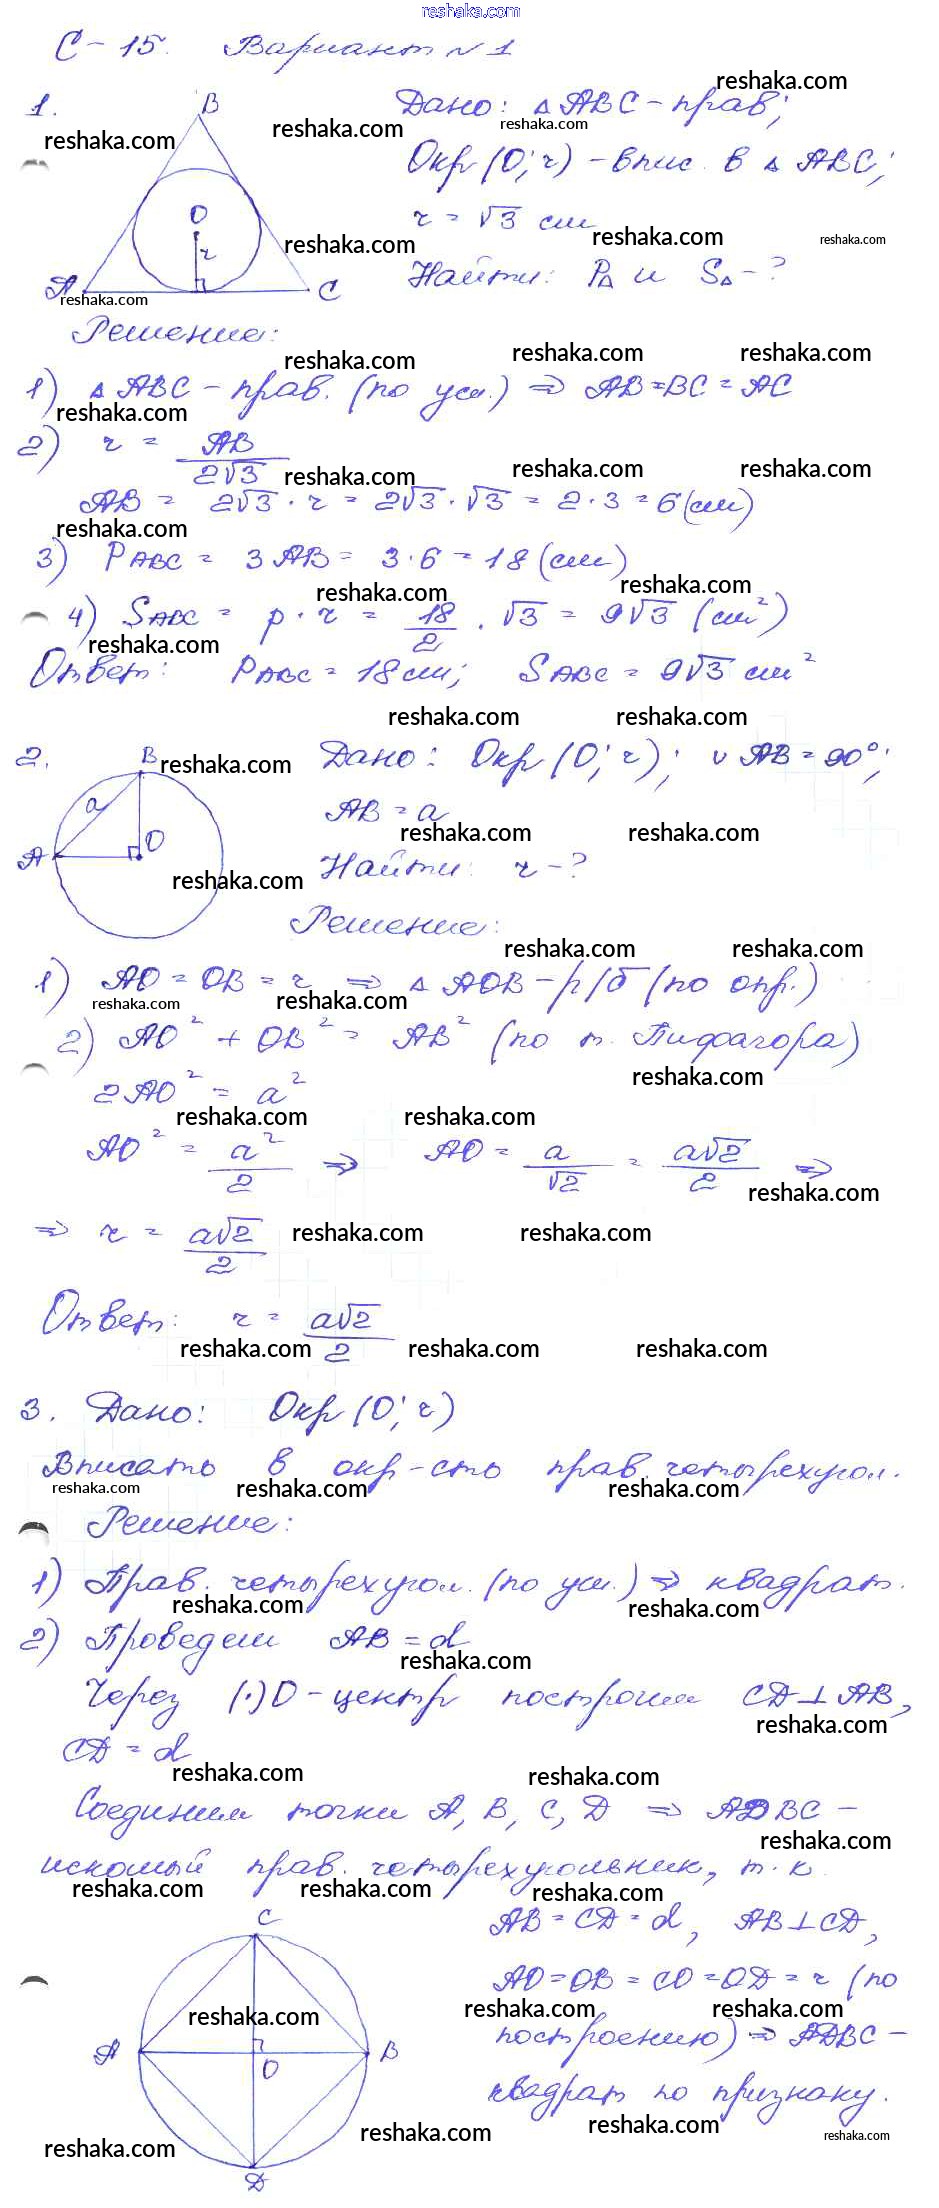 reshaka.com
С-15. Вариант №1
1. Дано: △ABC-прав;
Окр(O;r)-впис. в △ABC;
r = √3 см
Найти: P△ и S△-?
B
O
r
A
C
Решение:
1) △ABC-прав. (по усл.) ⇒ AB=BC=AC
2) r = AB/2√3
AB = 2√3 · r = 2√3 · √3 = 2·3 = 6(см)
3) PABC = 3AB = 3·6 = 18 (см)
4) SABC = p · r = 18/2 · √3 = 9√3 (см²)
Ответ: PABC = 18см; SABC = 9√3 см²
2. Дано: Окр(O;r); ∪AB=90°;
AB=a
Найти: r-?
B
a
A
O
Решение:
1) AO=OB=r ⇒ △AOB-р/б (по опр.)
2) AO² + OB² = AB² (по т. Пифагора)
2AO² = a²
AO² = a²/2 ⇒ AO = a/√2 = a√2/2 ⇒
⇒ r = a√2/2
Ответ: r = a√2/2
3. Дано: Окр(O;r)
Вписать в окр-сть прав. четырехугол.
Решение:
1) Прав. четырехугол. (по усл.) ⇒ квадрат.
2) Проведем AB=d
Через (·)O-центр построим CD⊥AB,
CD=d
Соединим точки A, B, C, D ⇒ ADBC-
искомый прав. четырехугольник, т.к.
AB=CD=d, AB⊥CD,
AO=OB=CO=OD=r (по
построению) ⇒ ADBC-
квадрат по признаку.
C
A
O
B
D